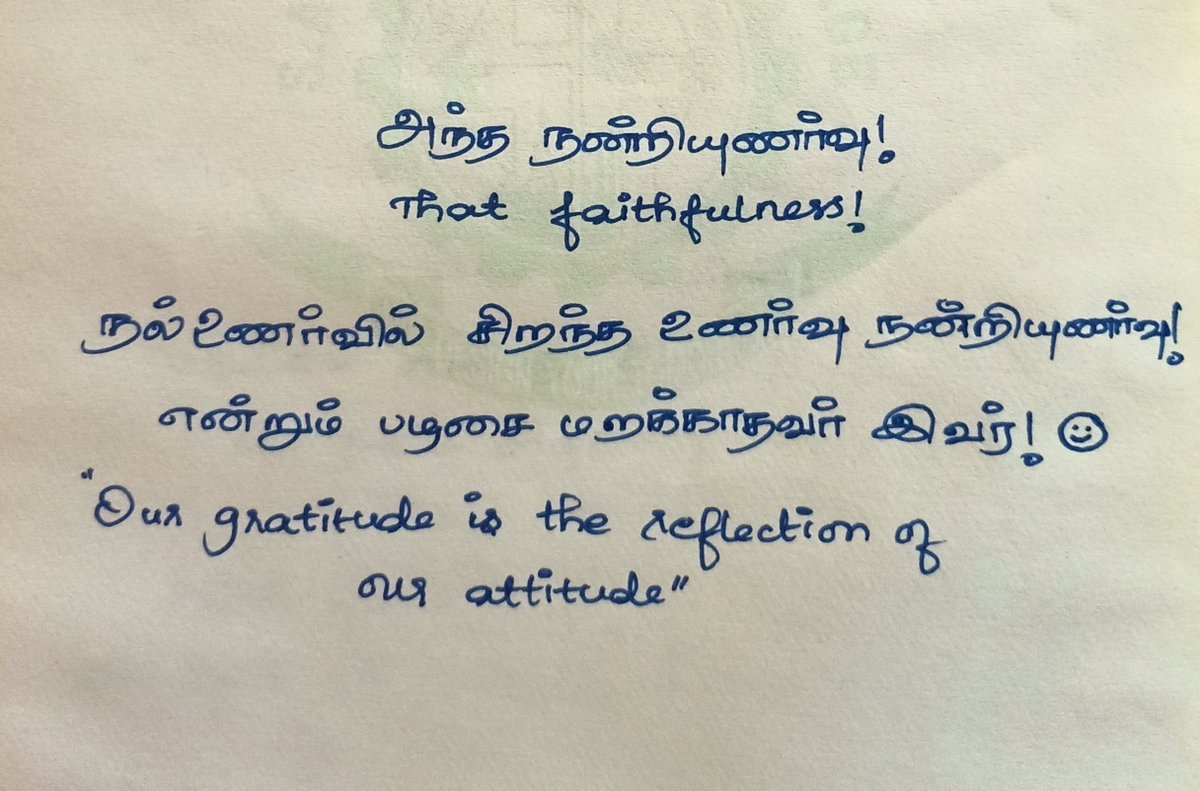 அந்த நன்றியுணர்வு!
That faithfulness!
நல் உணர்வில் சிறந்த உணர்வு நன்றியுணர்வு!
என்றும் மறக்காதவர் இவர்! ☺
"Our gratitude is the reflection of
our attitude"